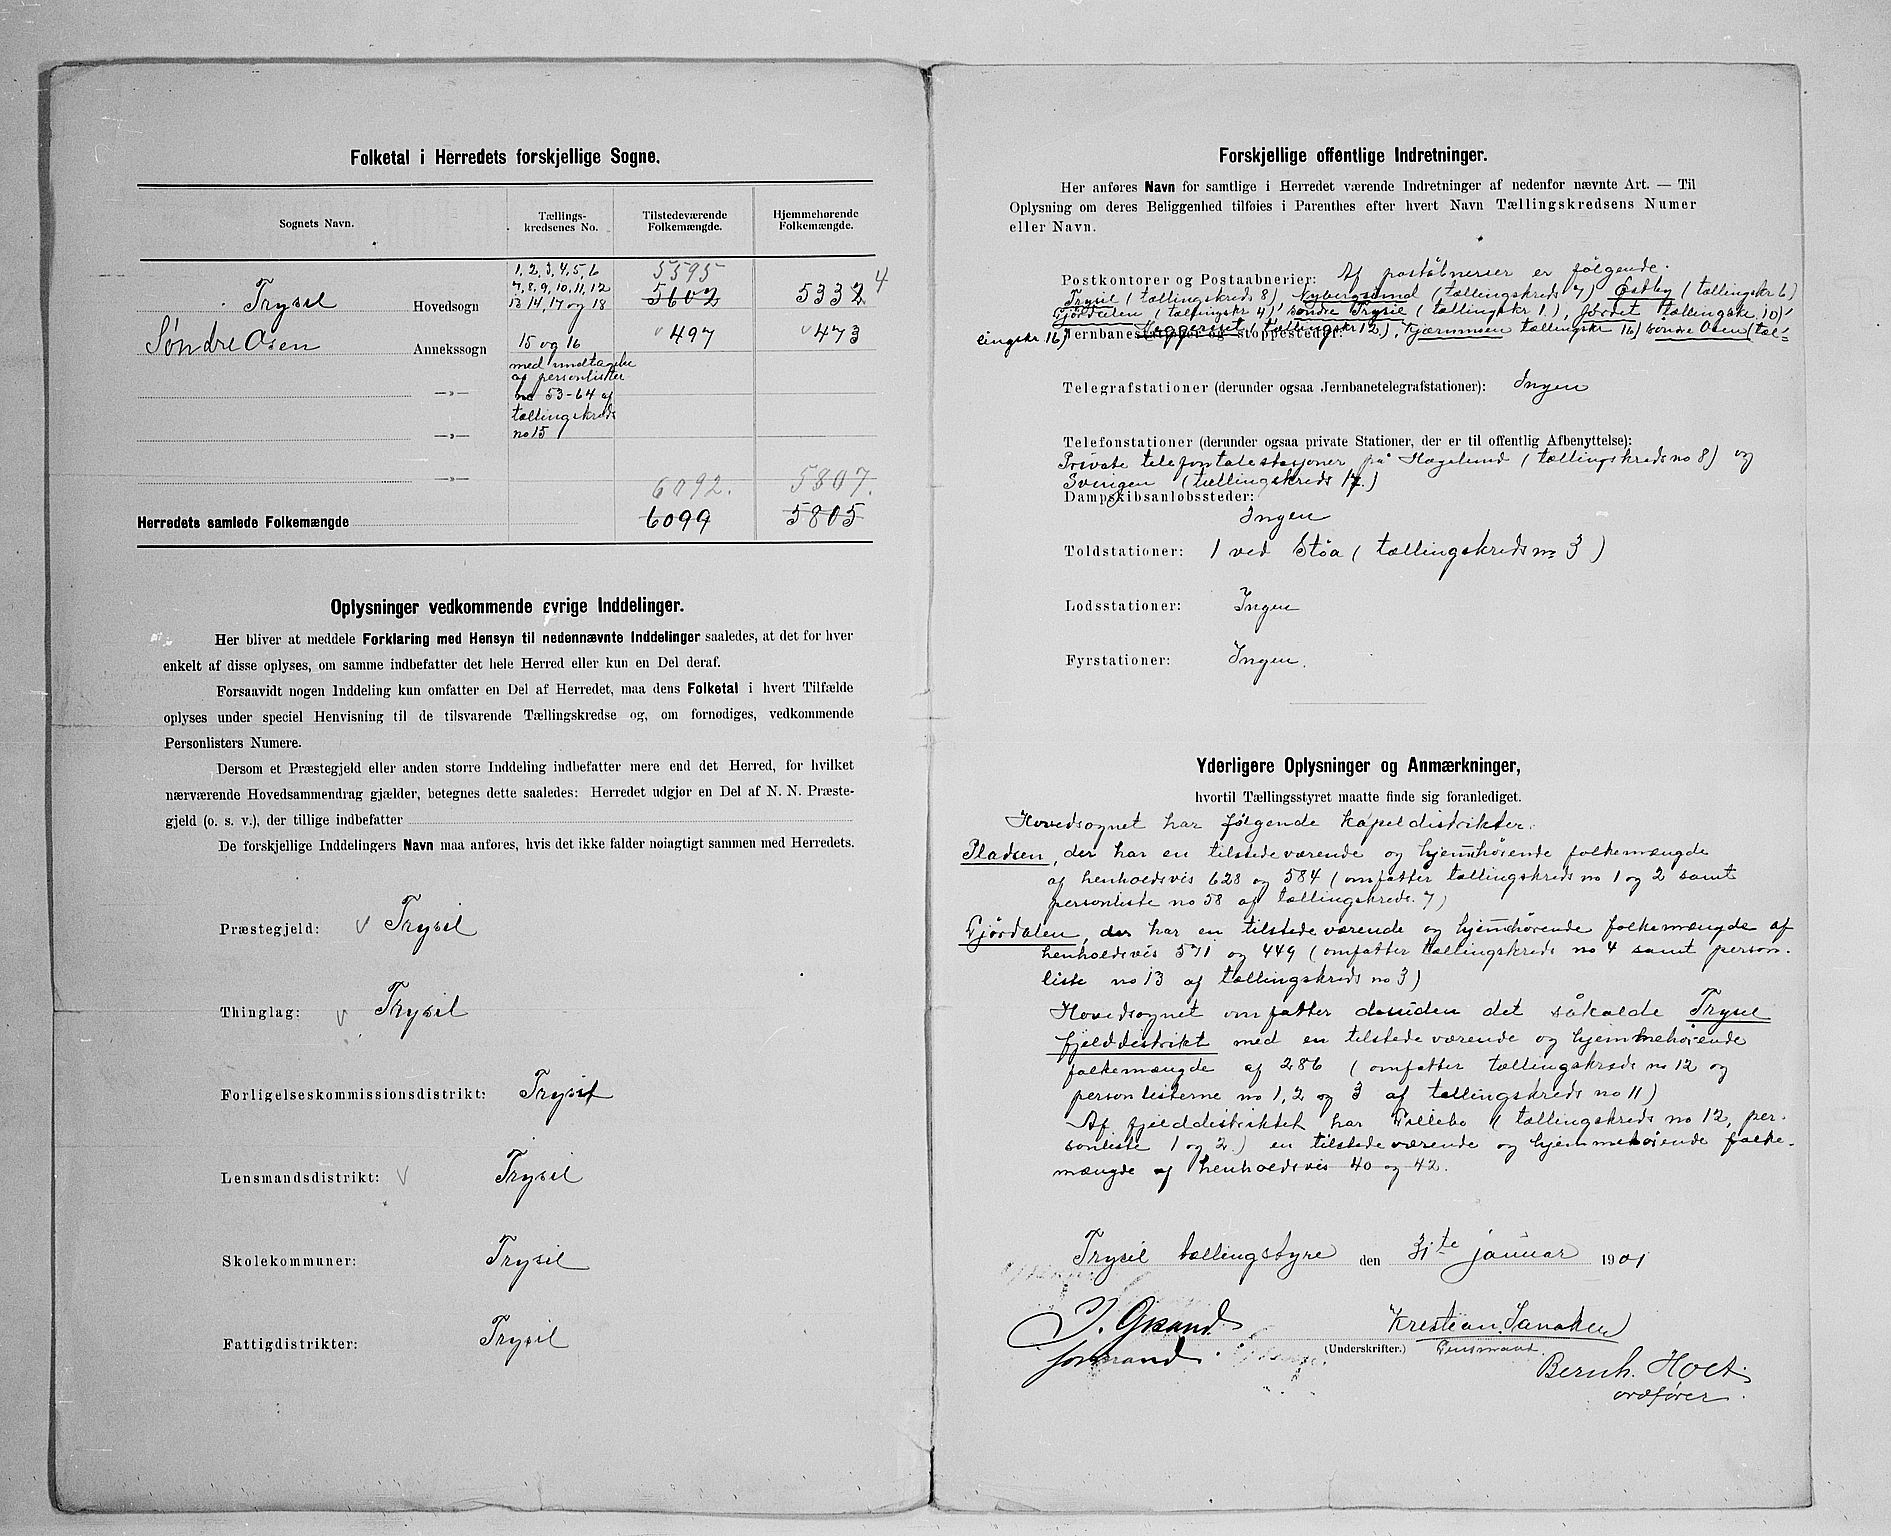 Folketal i Herredets forskjellige Sogne.
Sognets Navn.
Tællings-
kredsenes No.
Tilstedeværende
Folkemængde.
Hjemmehørende
Folkemængde.
1, 2, 3, 4, 5, 6
7, 8, 9, 10, 11, 12
13 14, 17 og 18
Trysil Hovedsogn
5595
5602
5332 4
Søndre Osen Annekssogn 15 og 16 497 473
med undtagelse
af personlister
no 53-64 af
tællingskreds
no 15
—»—
—»—
—»—
6092. 5807.
Herredets samlede Folkemængde 6099 5805
Oplysninger vedkommende øvrige Inddelinger.
Her bliver at meddele Forklaring med Hensyn til nedennævnte Inddelinger saaledes, at det for hver
enkelt af disse oplyses, om samme indbefatter det hele Herred eller kun en Del deraf.
Forsaavidt nogen Inddeling kun omfatter en Del af Herredet, maa dens Folketal i hvert Tilfælde
oplyses under speciel Henvisning til de tilsvarende Tællingskredse og, om fornødiges, vedkommende
Personlisters Numere.
Dersom et Præstegjeld eller anden større Inddeling indbefatter mere end det Herred, for hvilket
nærværende Hovedsammendrag gjælder, betegnes dette saaledes: Herredet udgjør en Del af N. N. Præste-
gjeld (o. s. v.), der tillige indbefatter
De forskjellige Inddelingers Navn maa anføres, hvis det ikke falder nøiagtigt sammen med Herredets.
Præstegjeld: Trysil
Thinglag: Trysil
Forligelseskommissionsdistrikt: Trysil
Lensmandsdistrikt: Trysil
Skolekommuner: Trysil
Fattigdistrikter: Trysil
Forskjellige offentlige Indretninger.
Her anføres Navn for samtlige i Herredet værende Indretninger af nedenfor nævnte Art. — Til
Oplysning om deres Beliggenhed tilføies i Parenthes efter hvert Navn Tællingskredsens Numer
eller Navn.
Postkontorer og Postaabnerier: Af poståbnerier er følgende:
Trysil (tællingskreds 8), Nybergsund (tællingskreds 7) Østby (tællingskr 6)
Fjørdalen (tællingskr 4), søndre Trysil (tællingskr 1), Jordet tællingskr. 10),
(tællingskr 12), Gjærmmoen tællingskr 16) søndre Osen (tæl-
lingskr 16)
Jernbanestationer og Stoppesteder:
Telegrafstationer (derunder ogsaa Jernbanetelegrafstationer): Ingen
Telefonstationer (derunder ogsaa private Stationer, der er til offentlig Afbenyttelse):
Private telefontalestasjoner på Hagelund (tællingskreds no 8) og
Svingen (tællingskreds 17.)
Dampskibsanløbssteder:
Ingen
Toldstationer: 1 ved Støa (tællingskreds no 3)
Lodsstationer: Ingen
Fyrstationer: Ingen.
Yderligere Oplysninger og Anmærkninger,
hvortil Tællingsstyret maatte finde sig foranlediget.
Hovedsognet har følgende kapeldistrikter:
Pladsen, der har en tilstedeværende og hjemmhørende folkemængde
af henholdsvis 628 og 584 (omfatter tællingskreds no 1 og 2 samt
personliste no 58 af tællingskreds 7)
Fjørdalen, der har en tilstedeværende og hjemmhørende folkemængde af
henholdsvis 571 og 449 (omfatter tællingskreds no 4 samt person-
liste no 13 af tællingskreds no 3)
Hovedsognet omfatter desuden det såkalde Trysil
fjelddistrikt med en tilstedeværende og hjemmehørende
folkemængde af 286 (omfatter tællingskreds no 12 og
personlisterne no 1, 2 og 3 af tællingskreds no 11)
Af fjelddistriktet har Lillebo (tællingskreds no 12, per-
sonliste 1 og 2) en tilstedeværende og hjemmehørende folke-
mængde af henholdsvis 40 og 42.
Trysil tællingstyre den 31te januar 1901
J. Grand
formand
Kristian Sanaker
Lensmand.
(Underskrifter.)
Bernh. Holt
ordfører.